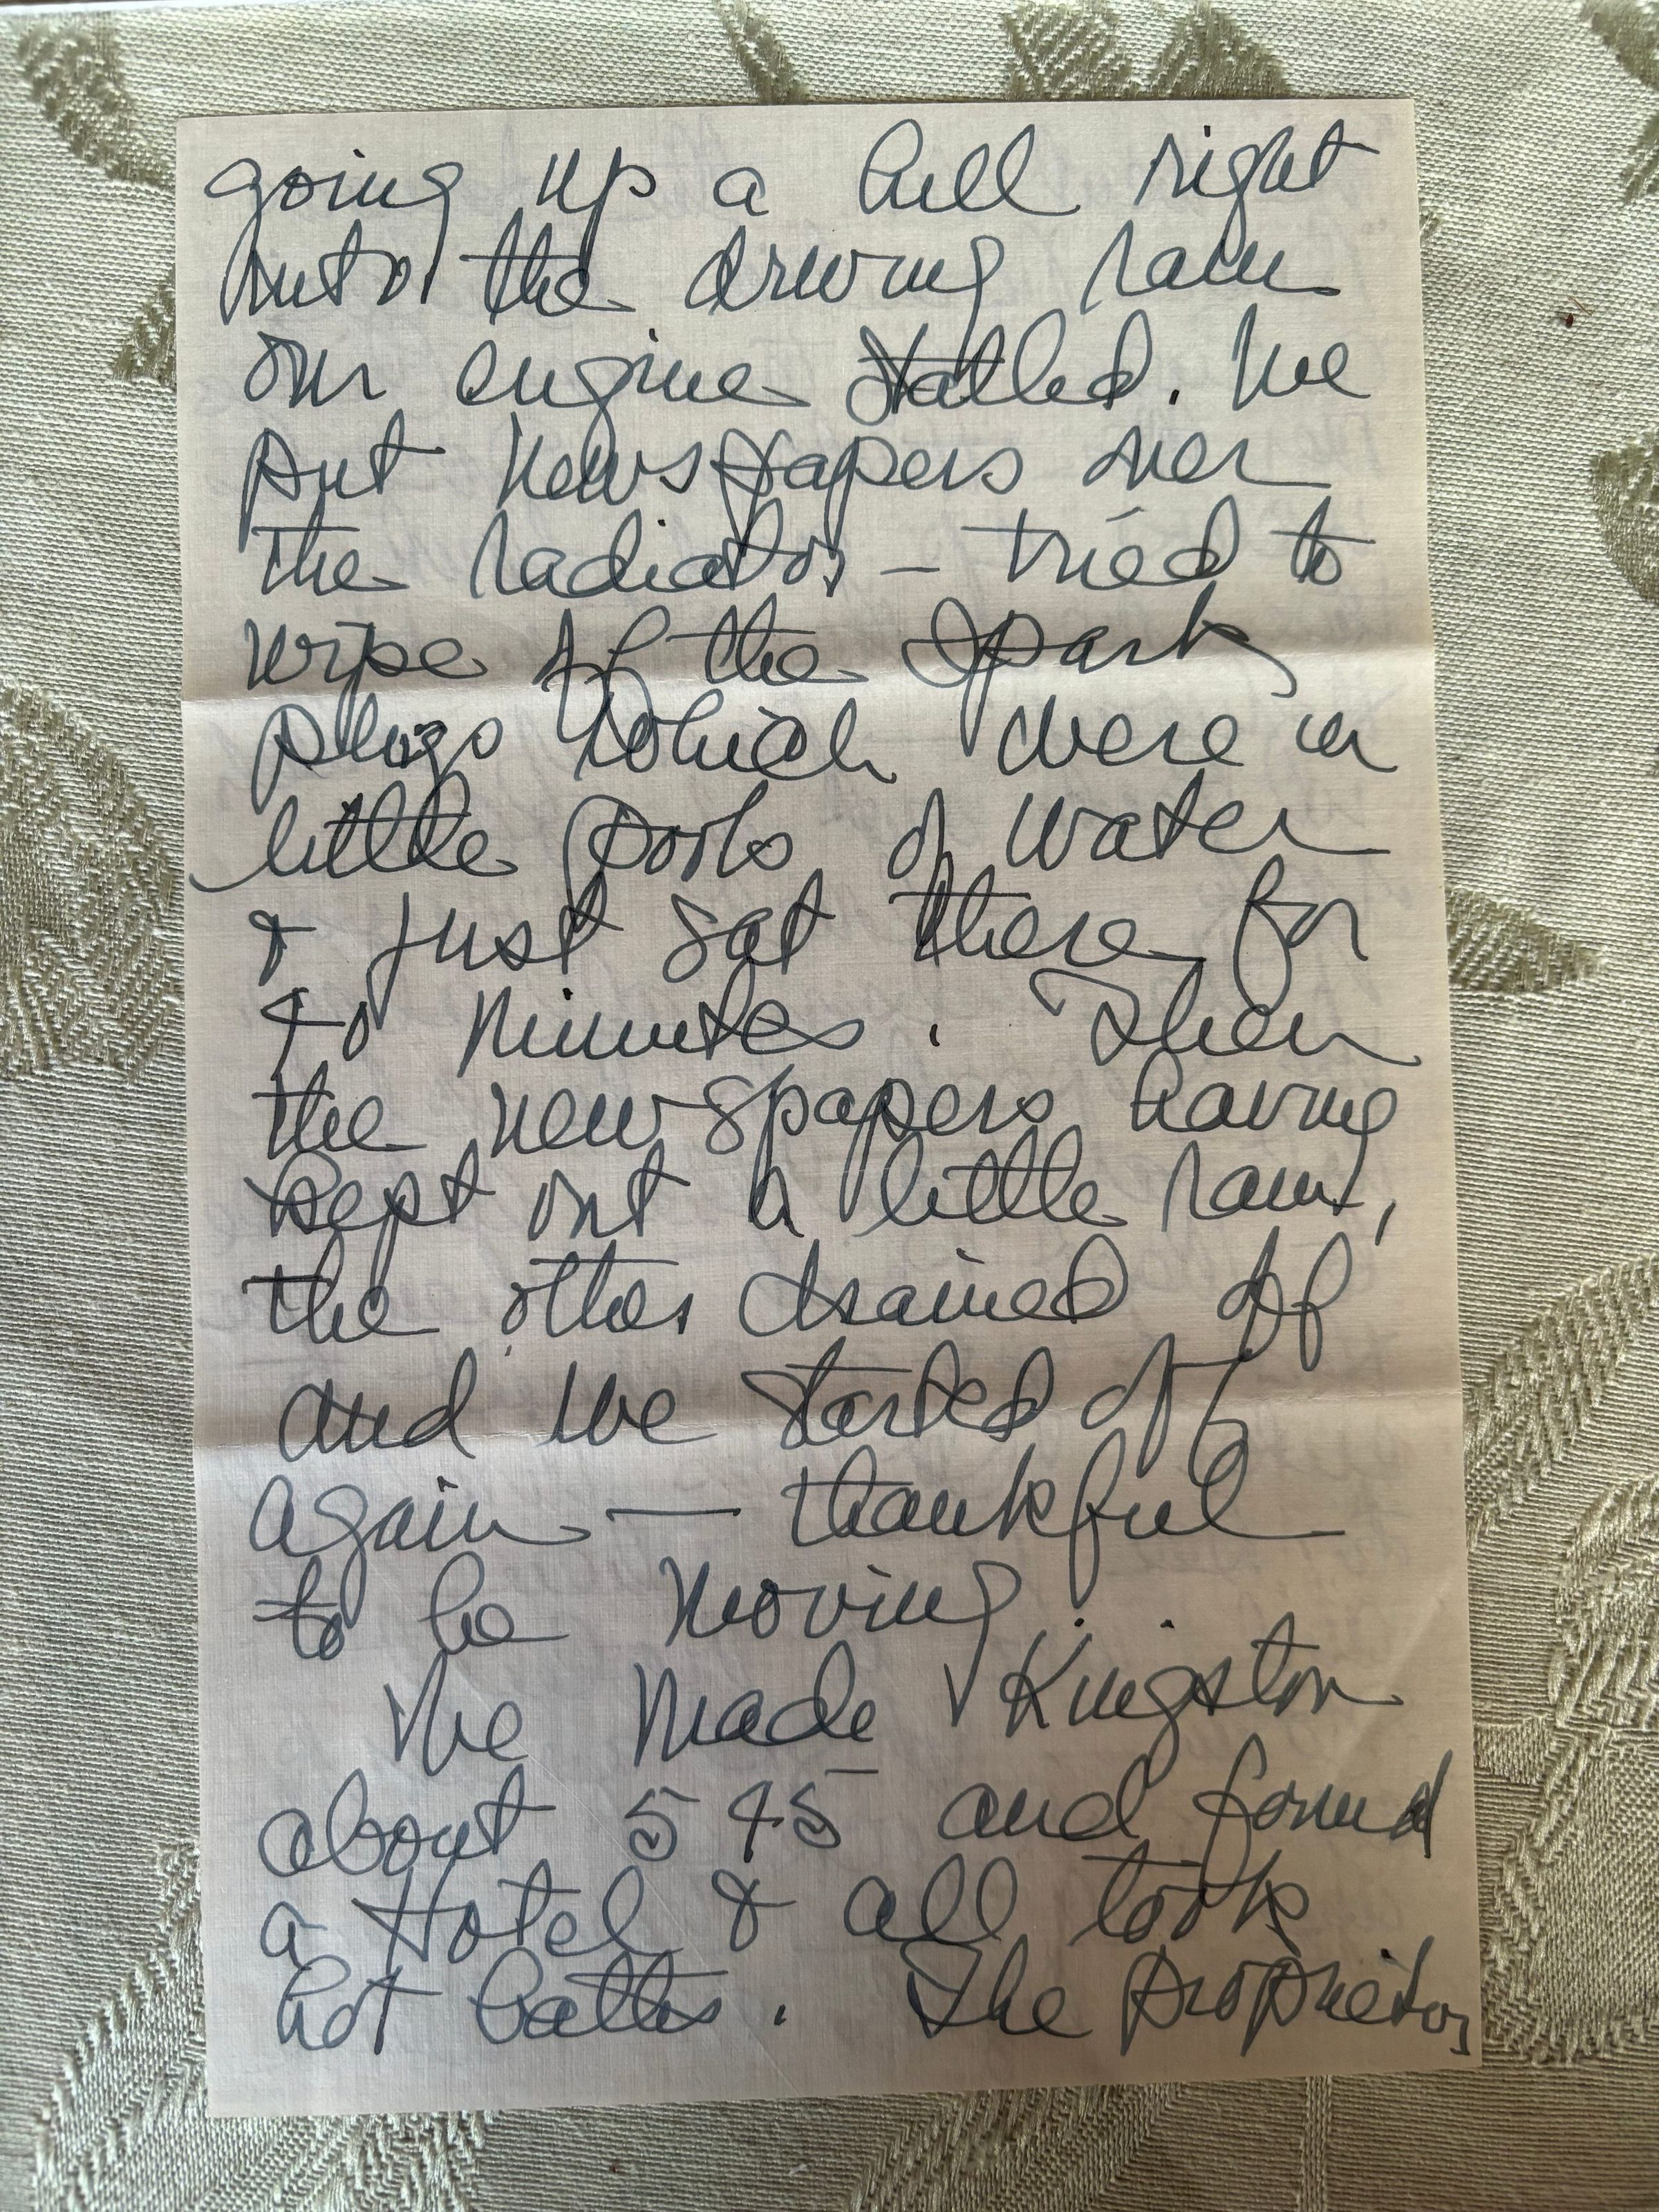 going up a hill right
into the driving rain
our engine stalled. We
put newspapers over
the radiator – tried to
wipe off the spark
plugs which were in
little pools of water
& just sat there for
40 minutes. Then
the newspapers having
kept out a little rain,
the other drained off
and we started off
again — thankful
to be moving.
We made Kingston
about 5 45 and found
a Hotel & all took
hot baths. The proprietor